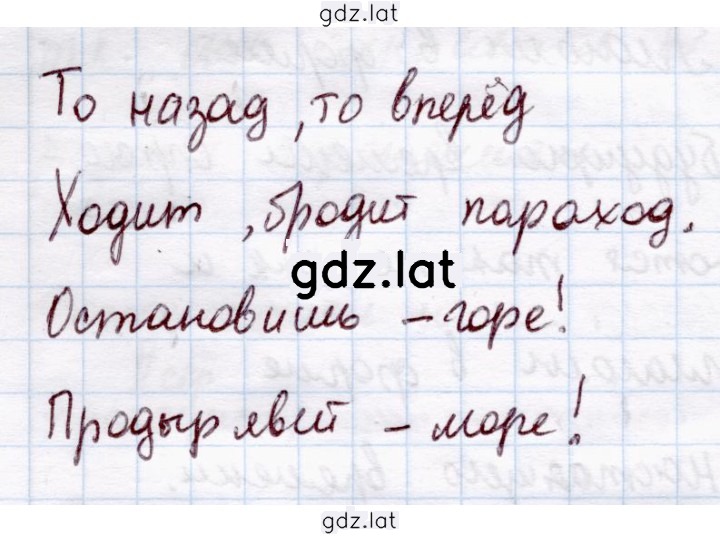 gdz.lat
То назад, то вперёд
Ходит, бродит пароход.
gdz.lat
Остановишь – горе!
Продырявит – море!
gdz.lat